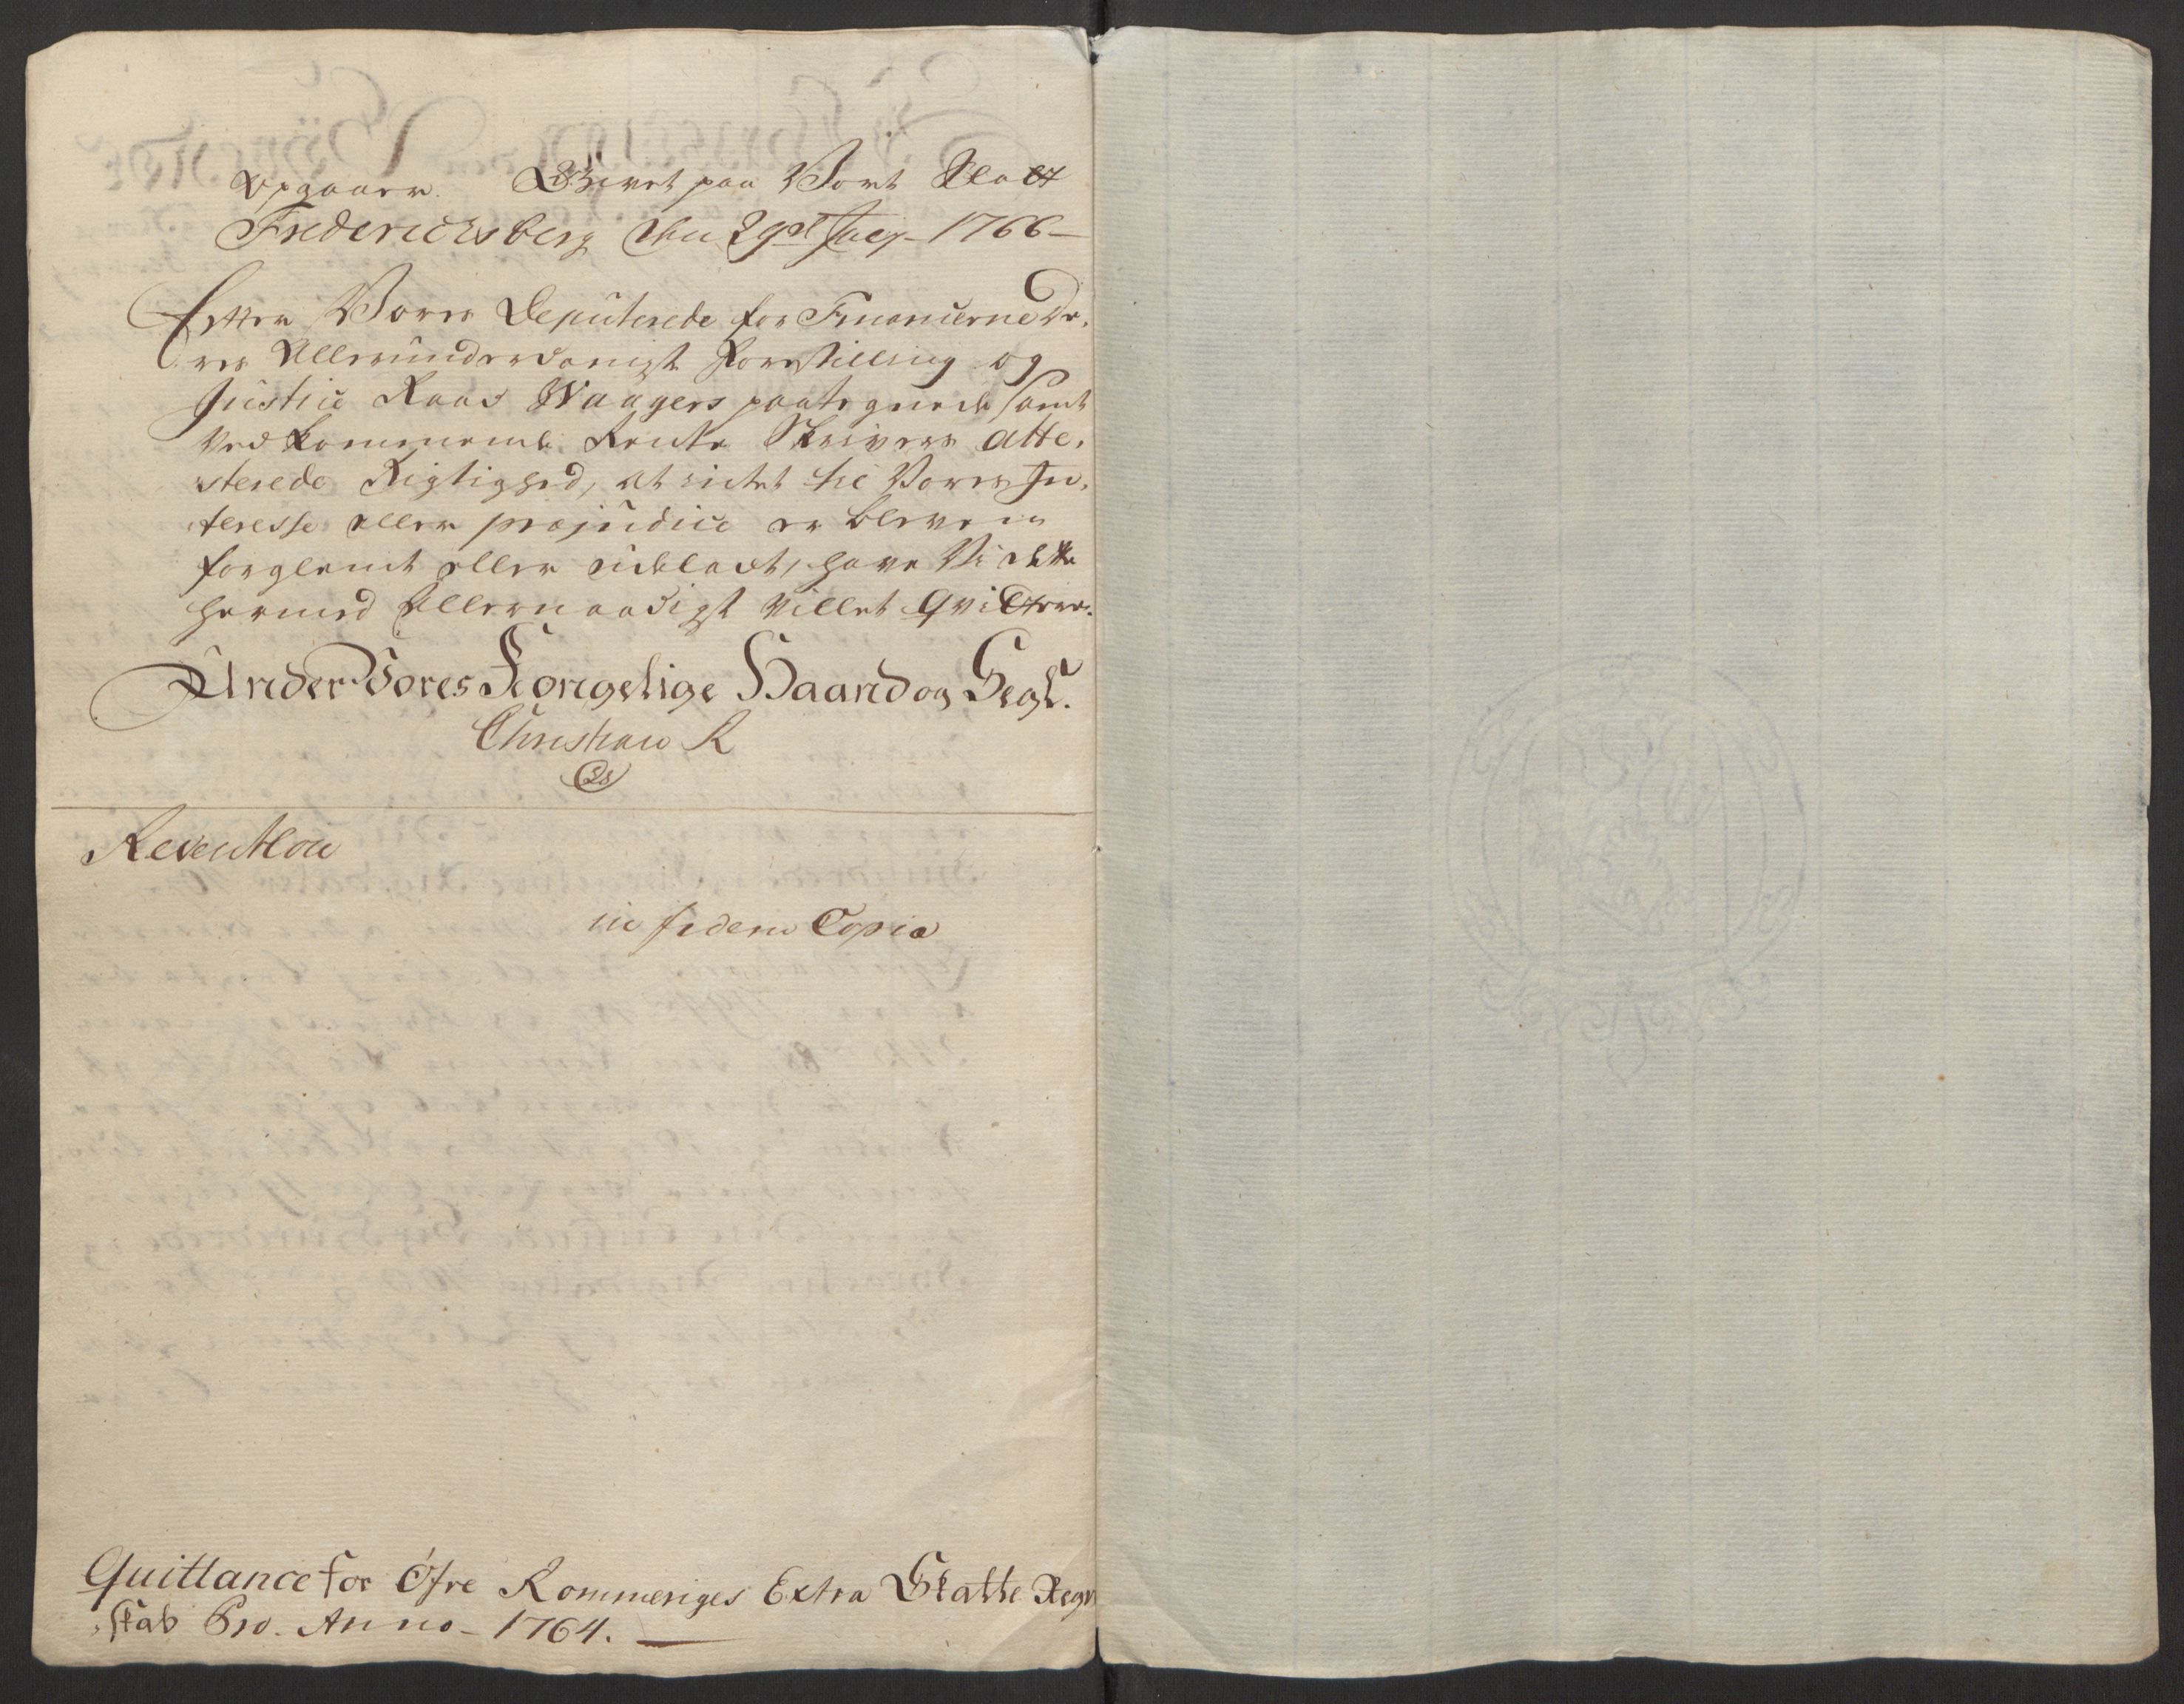 opgaaer. Skrevet paa Vort Slott
Friderichsberg den 29de July 1766
Efter Vores Deputerede for Financerne De,
res Allerunderdanigst Forestilling og
Justice Raad Waagers paategnede samt
vedkommende Rente Skrivers atte,
sterede Rigtighed, at intet til Vores In,
teresse eller præjudice er bleven
forglemt eller udeladt, have Vi dette
hermed Allernaadigst villet Qvittere.
Under Vores Kongelige Haand og Segl.
Christian R
LS
Reventlou
in fidem Copia
Quittance for Öfre Rommeriges Extra Skatte Regn
,skab Pro. Anno 1764.